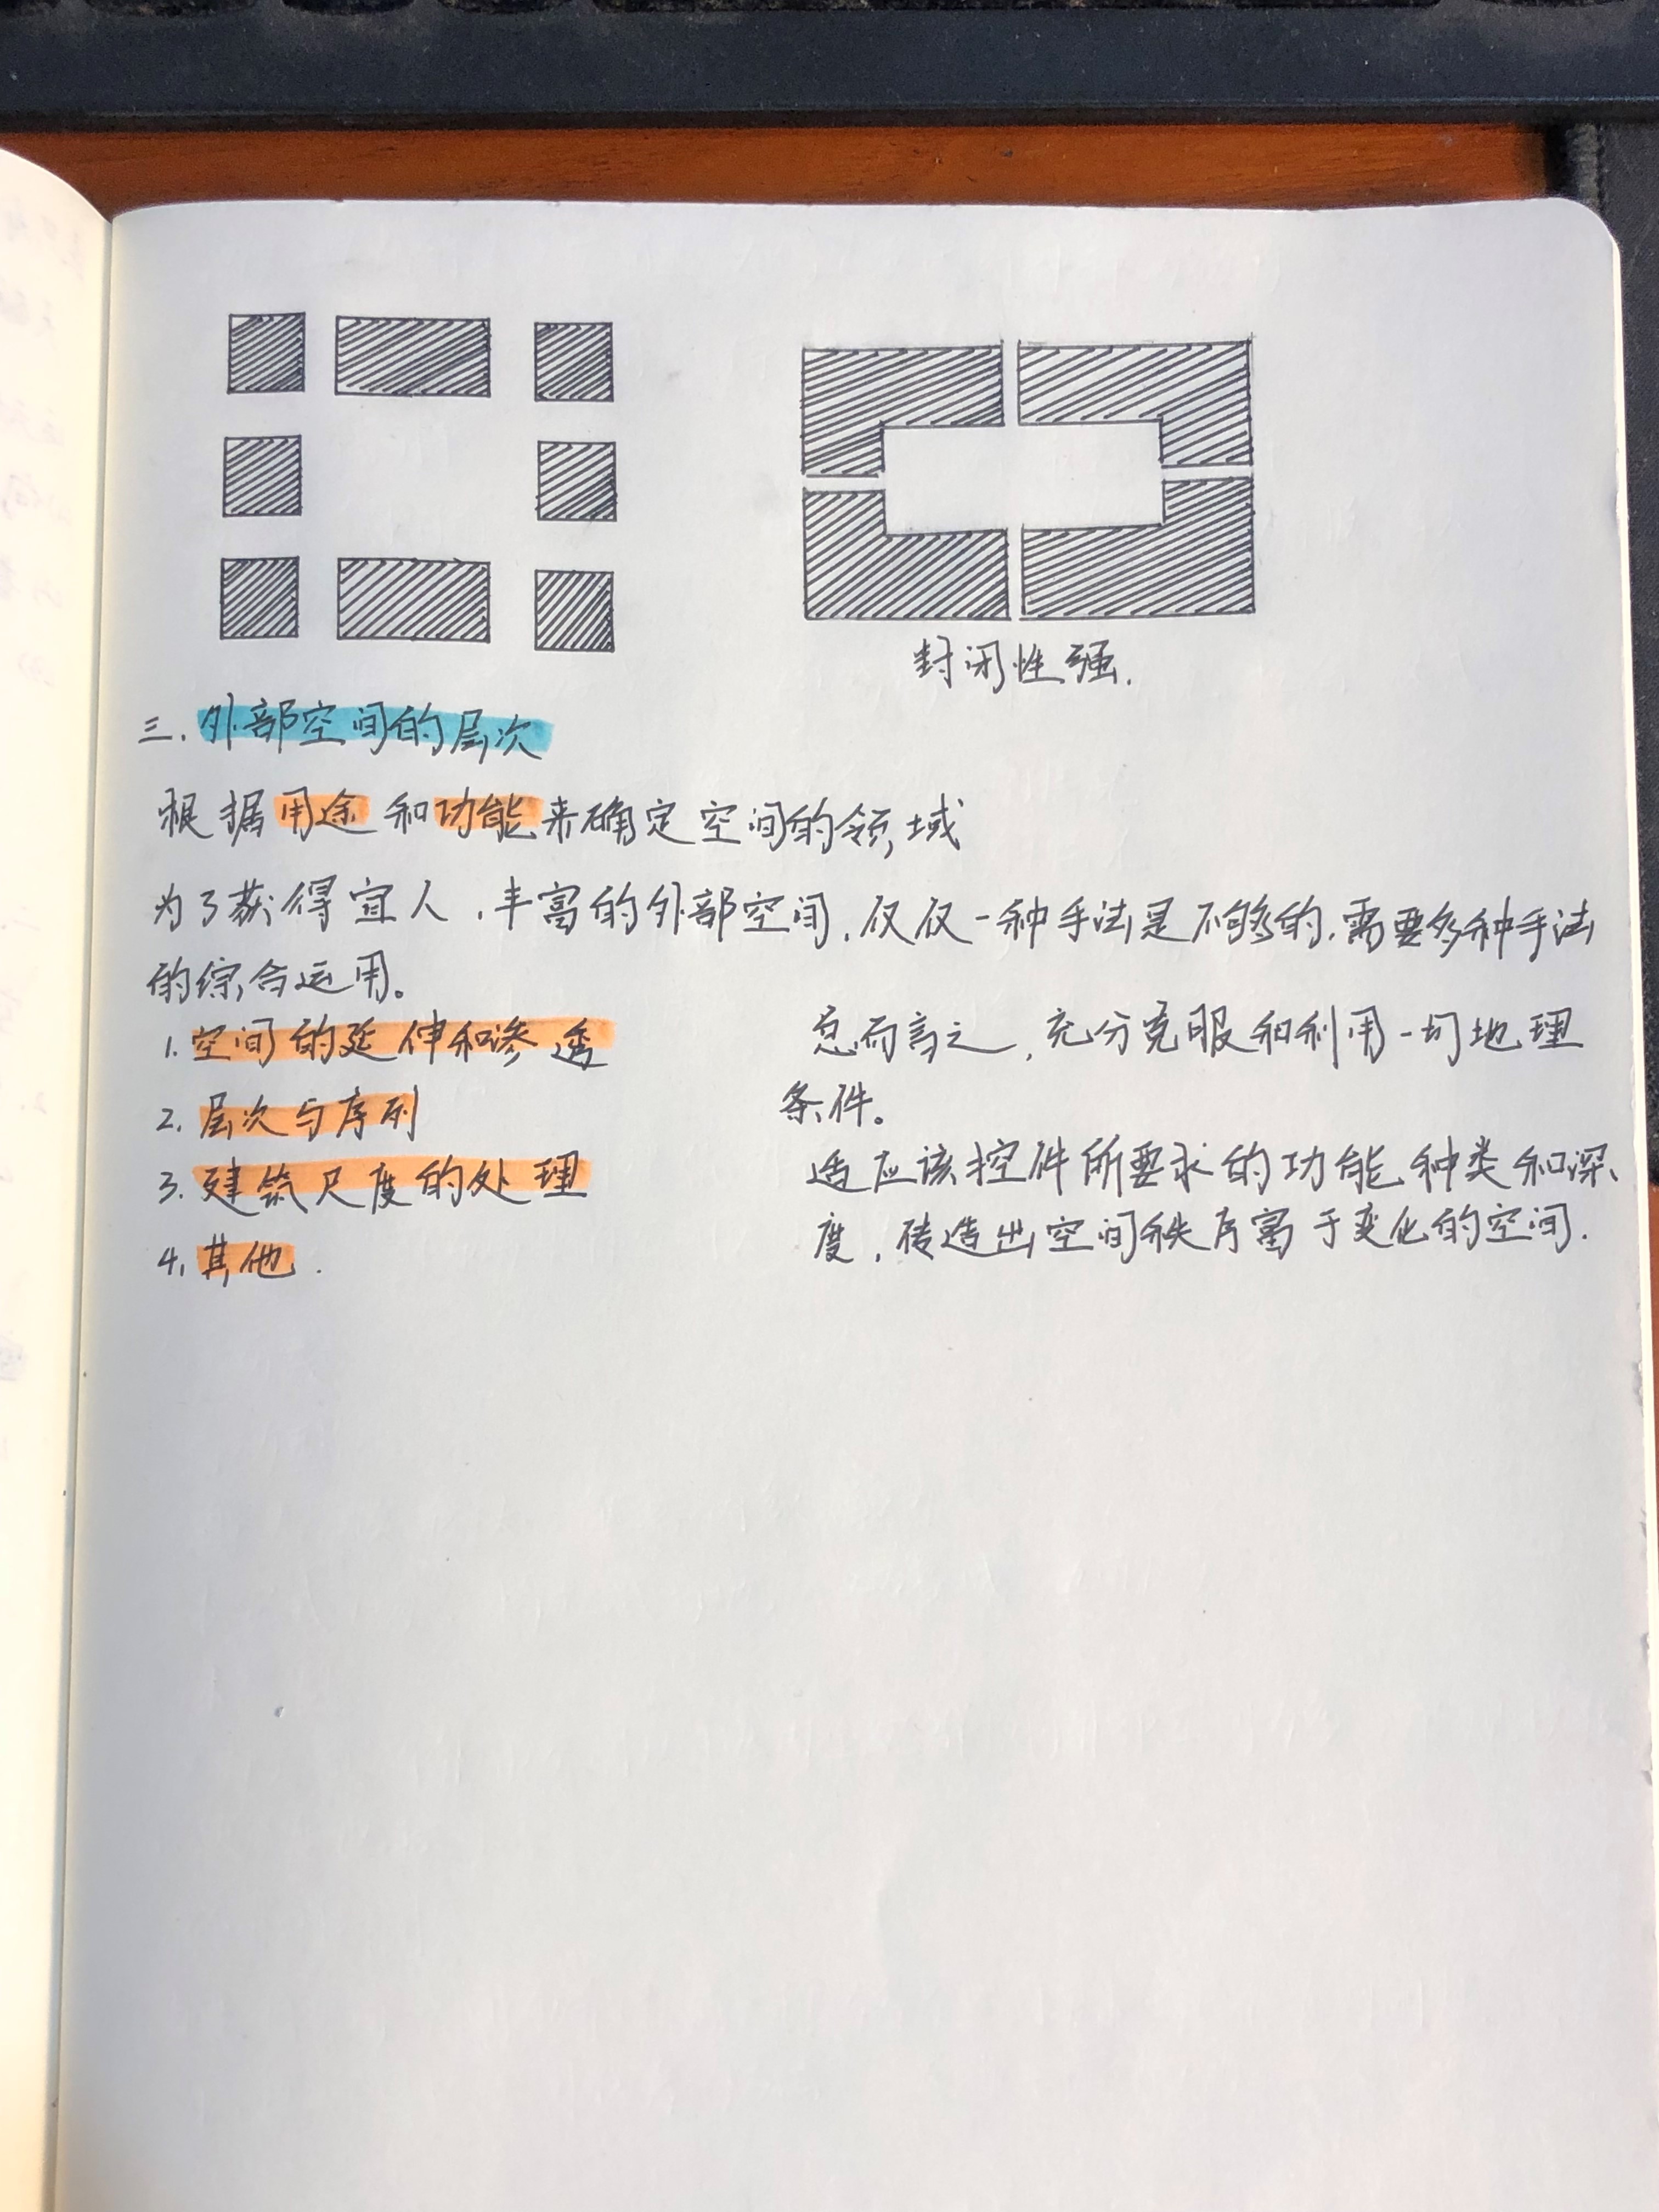 封闭性强.
三.外部空间的层次
根据用途和功能来确定空间的领域
为了获得宜人、丰富的外部空间,仅仅一种手法是不够的,需要多种手法
的综合运用。
1.空间的延伸和渗透
2.层次与序列
3.建筑尺度的处理
4.其他.
总而言之,充分克服和利用一切地理
条件。
适应该控件所要求的功能种类和深
度,创造出空间秩序富于变化的空间.